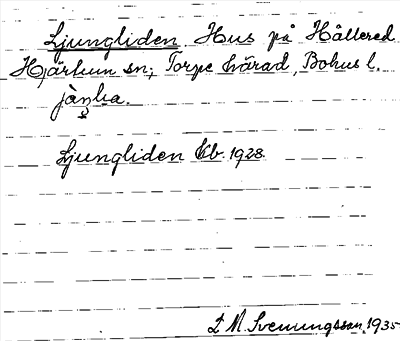 Ljungliden Hus på Hållered
Hjärtum sn; Torpe härad, Bohus l.
Ljungliden Kb. 1928.
I M. Svenungsson 1935